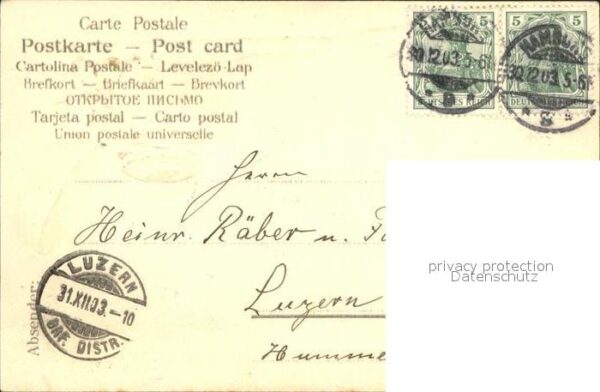 Carte Postale
Postkarte — Post card
Cartolina Postale — Levelező-Lap
Brefkort — Briefkaart — Brevkort
ОТКРЫТОЕ ПИСЬМО
Tarjeta postal — Carto postal
Union postale universelle
5
5
HAMBURG
30.12.03.5-6
DEUTSCHES REICH
HAMBURG
30.12.03.5-6
DEUTSCHES REICH
Herrn
Heinr. Räber u.
privacy protection
Datenschutz
Luzern
Absender:
LUZERN
31.XII.03.-10
BRF. DISTR.